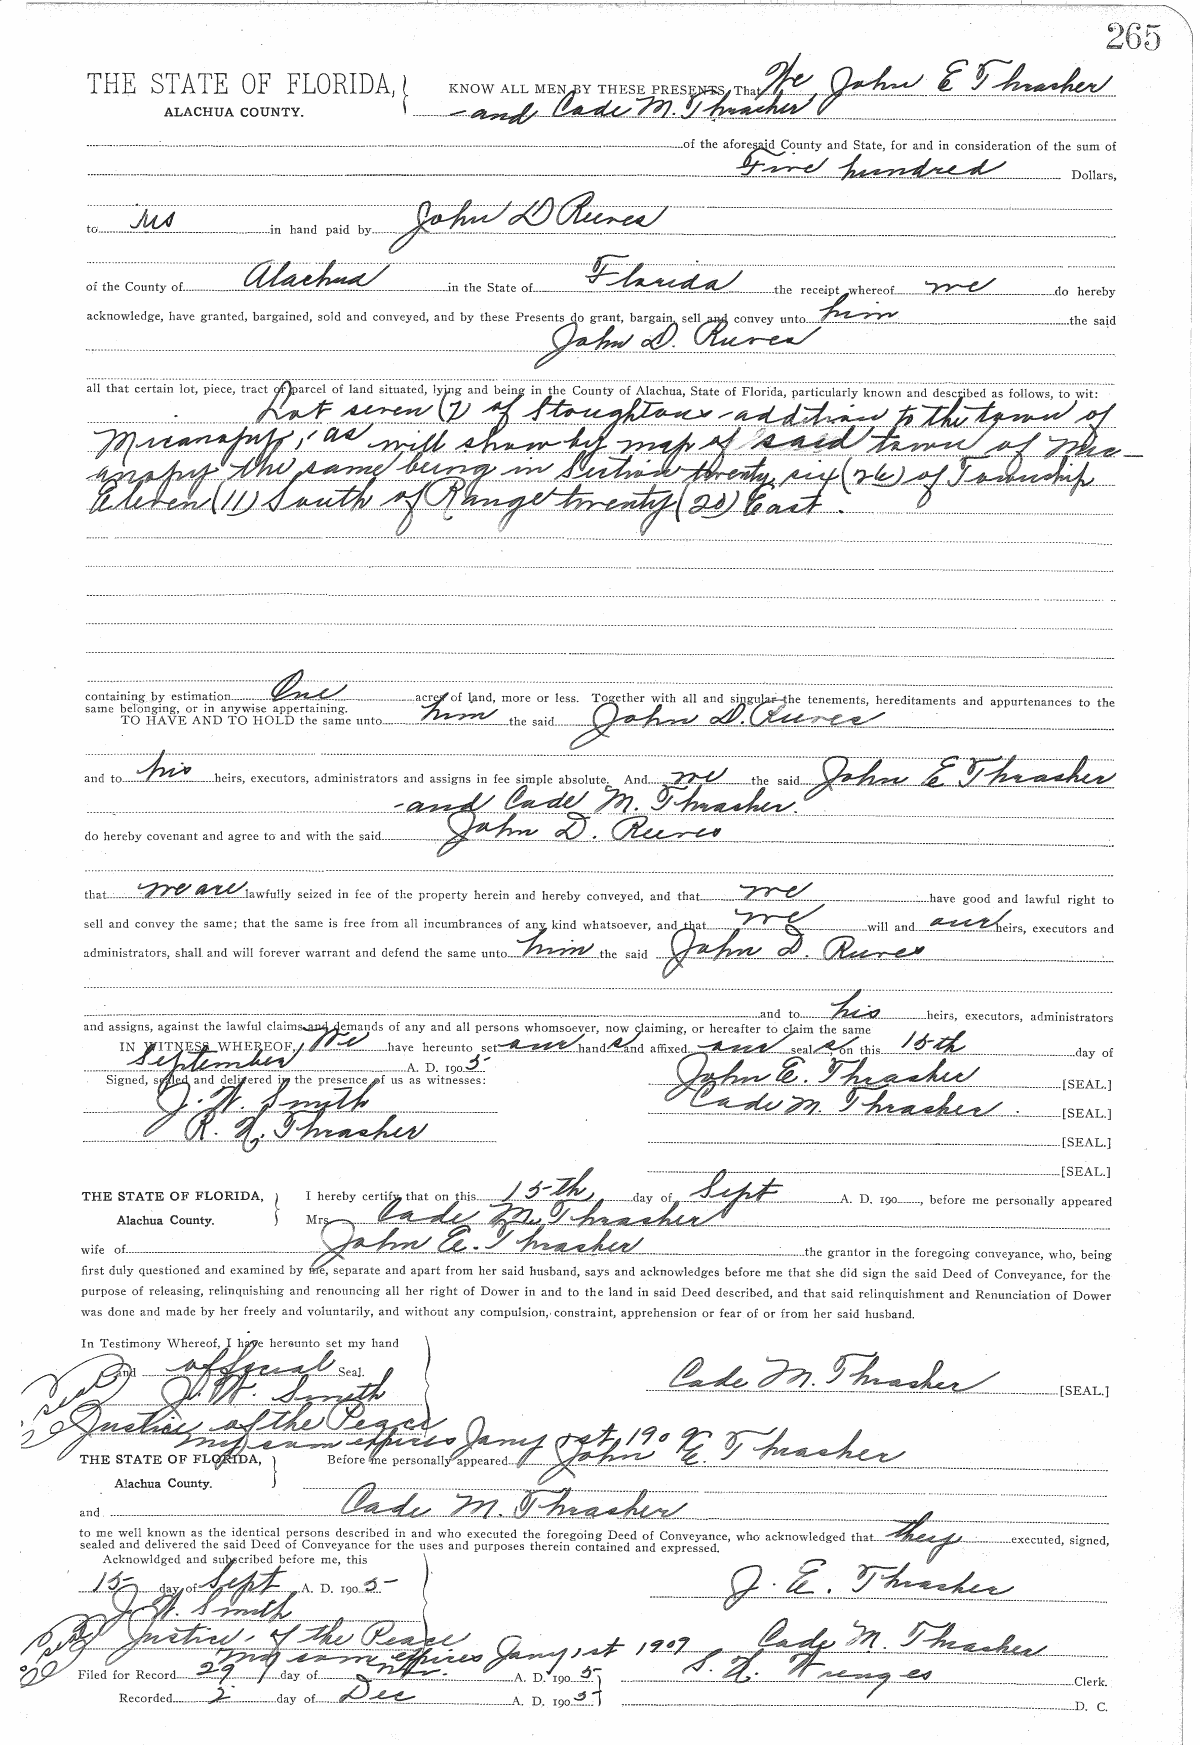 265
THE STATE OF FLORIDA, KNOW ALL MEN BY THESE PRESENTS, That We, John E Thrasher
ALACHUA COUNTY. and Cade M. Thrasher
of the aforesaid County and State, for and in consideration of the sum of
Five hundred Dollars,
to us in hand paid by John D Reeves
of the County of Alachua in the State of Florida the receipt whereof we do hereby
acknowledge, have granted, bargained, sold and conveyed, and by these Presents do grant, bargain, sell and convey unto him the said
John D. Reeves
all that certain lot, piece, tract or parcel of land situated, lying and being in the County of Alachua, State of Florida, particularly known and described as follows, to wit:
Lot seven (7) of Stoughtons addition to the town of
Micanopy, as will show by map of said town of Mic-
anopy the same being in Section twenty six (26) of Township
Eleven (11) South of Range twenty (20) East.
containing by estimation One acres of land, more or less. Together with all and singular the tenements, hereditaments and appurtenances to the
same belonging, or in anywise appertaining.
TO HAVE AND TO HOLD the same unto him the said John D. Reeves
and to his heirs, executors, administrators and assigns in fee simple absolute. And we the said John E Thrasher
and Cade M. Thrasher.
do hereby covenant and agree to and with the said John D. Reeves
that we are lawfully seized in fee of the property herein and hereby conveyed, and that we have good and lawful right to
sell and convey the same; that the same is free from all incumbrances of any kind whatsoever, and that we will and our heirs, executors and
administrators, shall and will forever warrant and defend the same unto him the said John D. Reeves
and to his heirs, executors, administrators
and assigns, against the lawful claims and demands of any and all persons whomsoever, now claiming, or hereafter to claim the same
IN WITNESS WHEREOF, We have hereunto set our hands and affixed our seals on this 15th day of
September A. D. 1905
Signed, sealed and delivered in the presence of us as witnesses: John E. Thrasher [SEAL.]
J. W. Smith Cade M. Thrasher [SEAL.]
R. Thrasher [SEAL.]
[SEAL.]
THE STATE OF FLORIDA, I hereby certify that on this 15th, day of Sept A. D. 190 , before me personally appeared
Alachua County. Mrs. Cade M. Thrasher
wife of John E. Thrasher the grantor in the foregoing conveyance, who, being
first duly questioned and examined by me, separate and apart from her said husband, says and acknowledges before me that she did sign the said Deed of Conveyance, for the
purpose of releasing, relinquishing and renouncing all her right of Dower in and to the land in said Deed described, and that said relinquishment and Renunciation of Dower
was done and made by her freely and voluntarily, and without any compulsion, constraint, apprehension or fear of or from her said husband.
In Testimony Whereof, I have hereunto set my hand
and official Seal. Cade M. Thrasher [SEAL.]
J. W. Smith
Justice of the Peace
my com expires Jany 1st 190
THE STATE OF FLORIDA, Before me personally appeared John E. Thrasher
Alachua County.
and Cade M. Thrasher
to me well known as the identical persons described in and who executed the foregoing Deed of Conveyance, who acknowledged that they executed, signed,
sealed and delivered the said Deed of Conveyance for the uses and purposes therein contained and expressed.
Acknowldged and subscribed before me, this
15 day of Sept A. D. 1905 J. E. Thrasher
J. W. Smith
Justice of the Peace Cade M. Thrasher
my com expires Jany 1st 1909
Filed for Record 29 day of Nov. A. D. 1905 S. H. Wienges Clerk.
Recorded 2 day of Dec A. D. 1905 D. C.